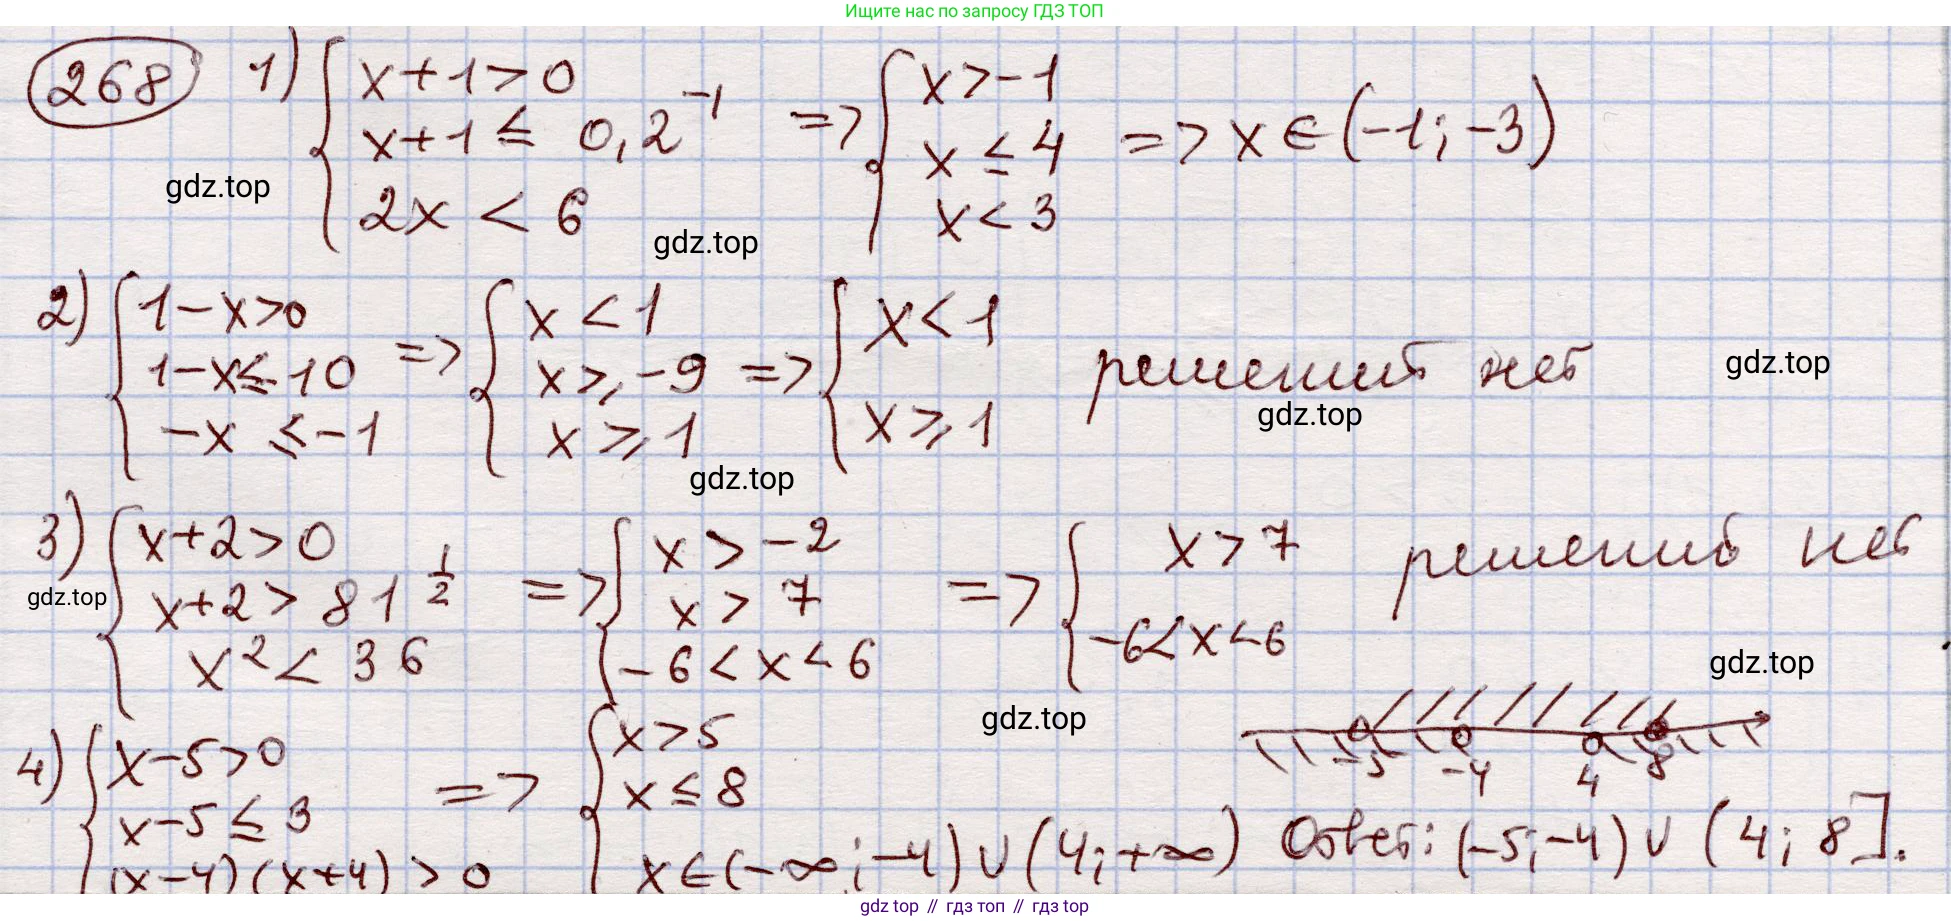 Ищите нас по запросу ГДЗ ТОП
268 1) { x+1>0 ; x+1 ≤ 0,2^{-1} ; 2x < 6 => { x>-1 ; x ≤ 4 ; x < 3 => x ∈ (-1; -3)
gdz.top
gdz.top
2) { 1-x>0 ; 1-x ≤ 10 ; -x ≤ -1 => { x < 1 ; x ≥ -9 ; x ≥ 1 => { x < 1 ; x ≥ 1 решений нет
gdz.top
gdz.top
gdz.top
3) { x+2>0 ; x+2 > 81^{1/2} ; x² < 36 => { x > -2 ; x > 7 ; -6 < x < 6 => { x > 7 ; -6 < x < 6 решений нет
gdz.top
gdz.top
gdz.top
4) { x-5>0 ; x-5 ≤ 3 ; (x-4)(x+4) > 0 => { x > 5 ; x ≤ 8 ; x ∈ (-∞; -4) ∪ (4; +∞)
-5 -4 4 8
Ответ: (-5; -4) ∪ (4; 8].
gdz top // гдз топ // гдз top